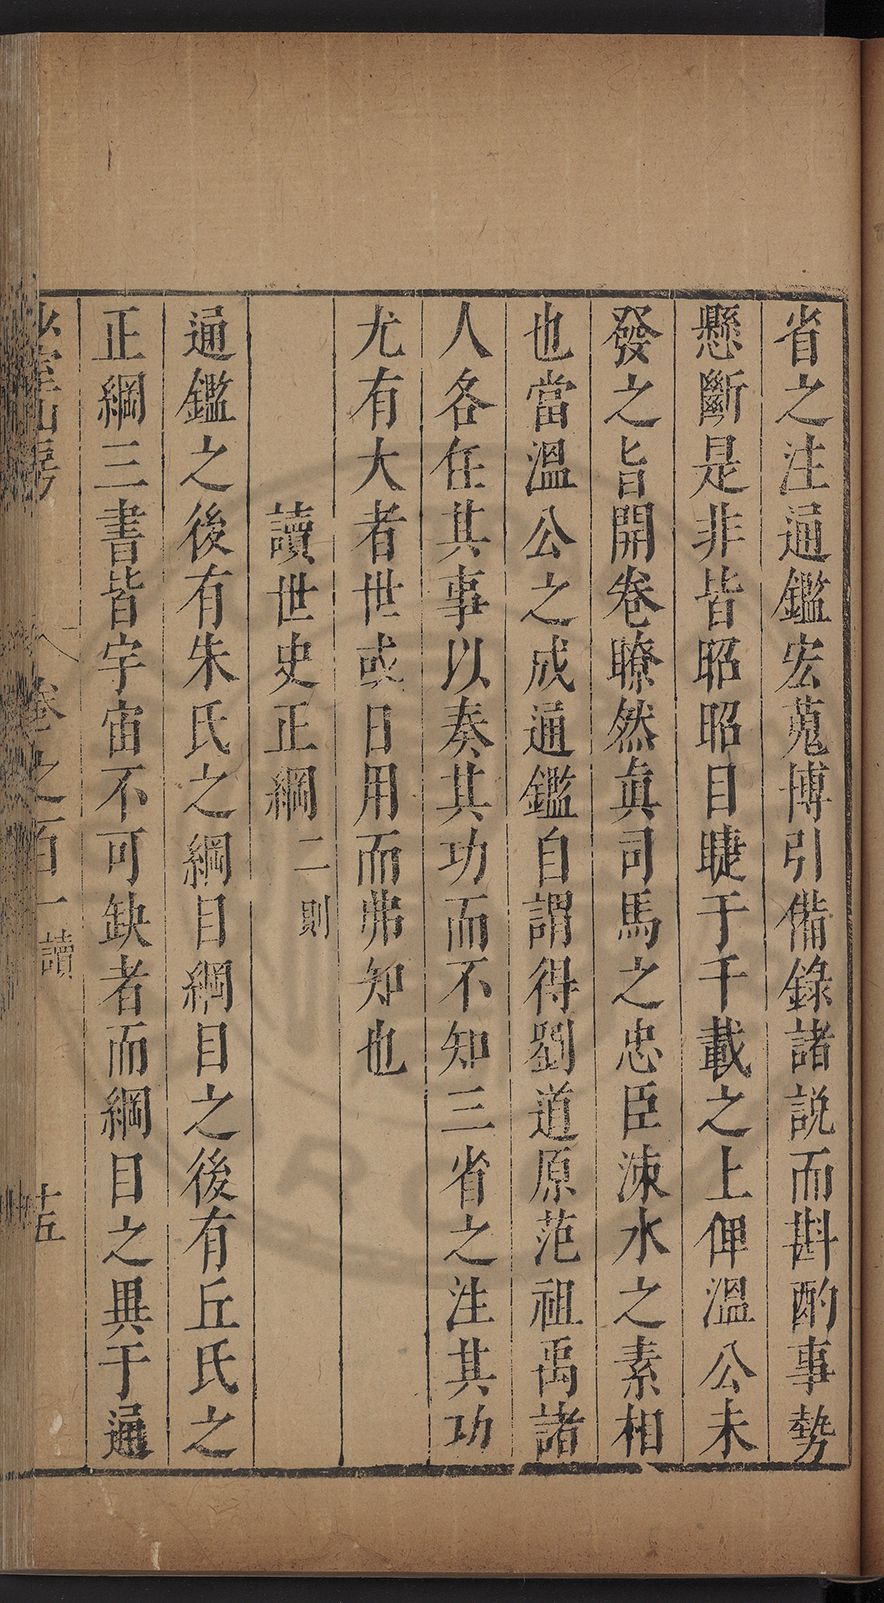 省之注通鑑宏蒐博引僃錄諸説而斟酌事勢
懸斷是非皆昭昭目睫于千載之上俾溫公未
發之旨開卷瞭然眞司馬之忠臣涑水之素相
也當溫公之成通鑑自謂得劉道原范祖禹諸
人各任其事以奏其功而不知三省之注其功
尤有大者世或日用而弗知也
讀世史正綱二則
通鑑之後有朱氏之綱目綱目之後有丘氏之
正綱三書皆宇宙不可缺者而綱目之異于通
少室山房 卷之百一 讀 十五